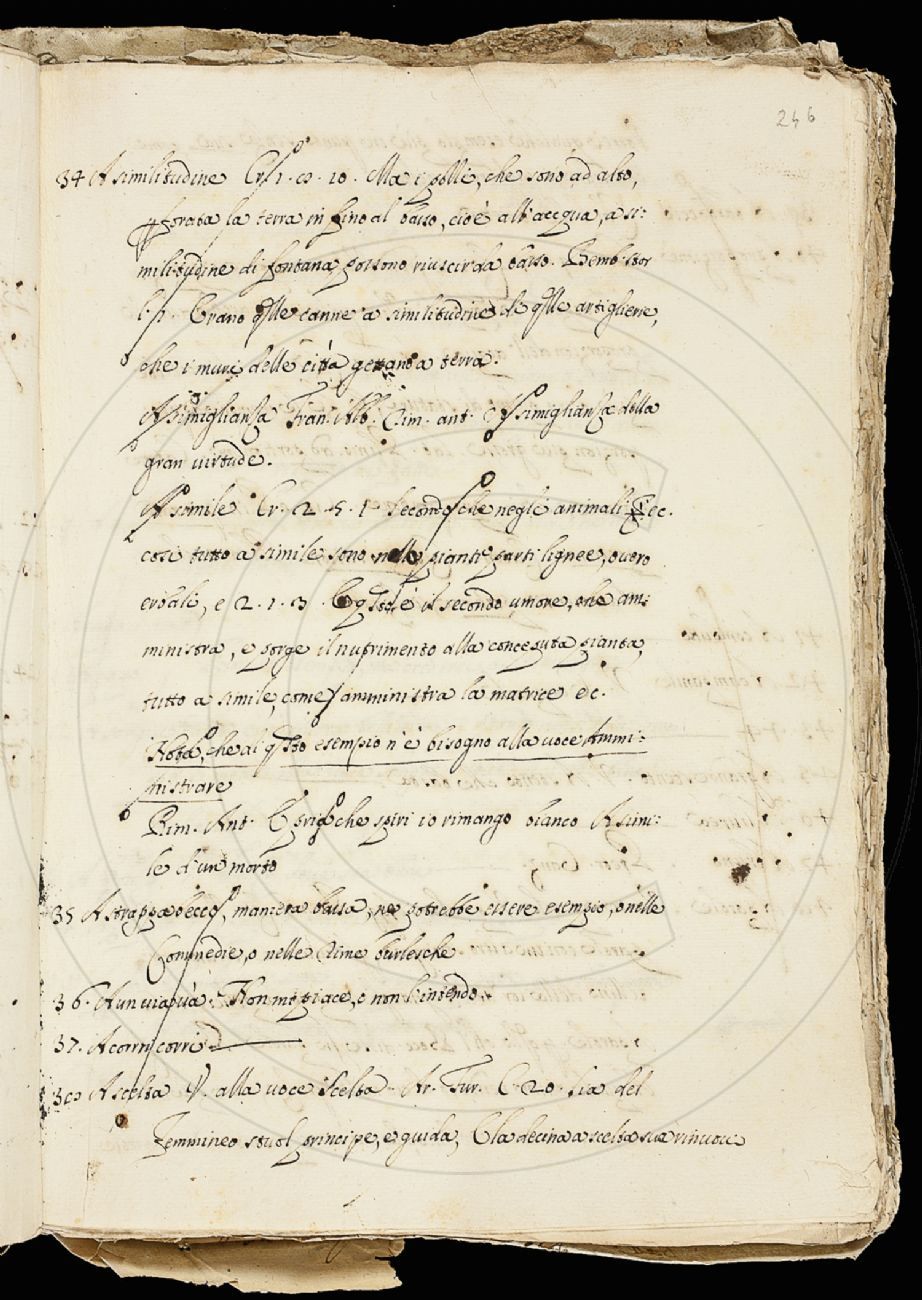 246
34 A similitudine Cr. 1. 8. 10. Ma i polli, che sono ad alto,
forata la terra in fino al basso, cioè all'acqua, a si:
militudine di fontana possono riuscir da basso. Bemb. stor
l. Erano q̃lle canne a similitudine de q̃lle artiglierie,
che i muri delle città gettano a terra.
A simiglianza Fran. Alb. Rim. ant. E A simiglianza della
gran virtude.
A simile Cr. 2. 5. 1. Secondo che negli animali ec.
così tutto a simile sono nelle piante parti lignee, overo
erbali, e 2. 1. 3. E q̃sto è il secondo umore, che am:
ministra, e porge il nutrimento alla conceputa pianta,
tutto a simile, come amministra la matrice ec.
Nota, che di q̃sto esempio n'è bisogno alla voce Ammi:
nistrare
Rim. Ant. E pria che spiri io rimango bianco A simi:
le d'un morto
35 A strappabecco, maniera bassa, ne potrebbe essere esempio, o nelle
Commedie, o nelle Rime burlesche
36. A un viapiù. Non mi piace, e non l'intendo.
37. A corri corri
38 A scelta V. alla voce Scelta. Ar. Fur. C. 20. Sia del
Femmineo stuol principe, e guida, E la decina a scelta sua rinuove